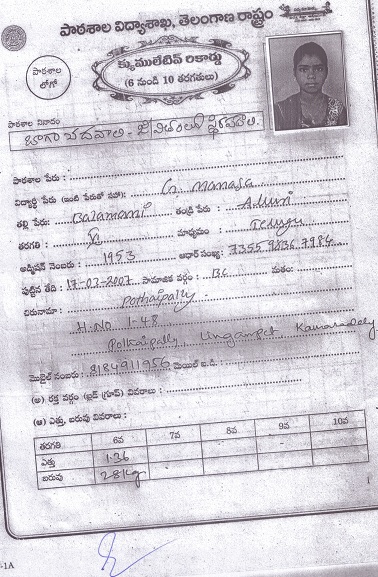 పాఠశాల విద్యాశాఖ, తెలంగాణ రాష్ట్రం
పాఠశాల లోగో
క్యుములేటివ్ రికార్డు
(6 నుండి 10 తరగతులు)
పాఠశాల నినాదం
బాగా చదవాలి -
పాఠశాల పేరు :
విద్యార్థి పేరు (ఇంటి పేరుతో సహా): G. manasa
తల్లి పేరు: Balamani తండ్రి పేరు :
తరగతి : మాధ్యమం : Telugu
అడ్మిషన్ నెంబరు : 1953 ఆధార్ సంఖ్య: 7355 9836 7984
పుట్టిన తేది : 17-03-2007 సామాజిక వర్గం : BC మతం:
చిరునామా : Pothaipally
H.No 1-48
Pothaipally, Lingampet Kamareddy
మొబైల్ నంబరు : 8184911956 మెయిల్ ఐ.డి.
(అ) రక్త వర్గం (బ్లడ్ గ్రూప్) వివరాలు :
(ఆ) ఎత్తు, బరువు వివరాలు :
తరగతి 6వ 7వ 8వ 9వ 10వ
ఎత్తు 1.36
బరువు 28kg
1
-1A